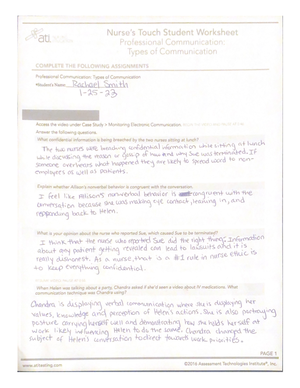 ati
Nurse's Touch Student Worksheet
Professional Communication:
Types of Communication
COMPLETE THE FOLLOWING ASSIGNMENTS
Professional Communication: Types of Communication
Student's Name: Rachael Smith
1-25-23
Access the video under Case Study > Monitoring Electronic Communication.
Answer the following questions.
What confidential information is being breached by the two nurses sitting at lunch?
The two nurses were breaking confidential information while sitting at lunch
while discussing the reason or group of how and why Sue was terminated. If
someone overhears what happened they are likely to spread word to non-
employers as well as patients.
Explain whether Alison's nonverbal behavior is congruent with the conversation.
I feel like Allison's nonverbal behavior is congruent with the
conversation because she was making eye contact, leaning in, and
responding back to Helen.
What is your opinion about the nurse who reported Sue, which caused Sue to be terminated?
I think that the nurse who reported Sue did the right thing. Information
about any patient getting revealed can lead to lawsuits and it is
really dishonest. As a nurse, that is a #1 rule in nurse ethic is
to keep everything confidential.
When Helen was talking about a party, Chandra asked if she'd seen a video about IV medications. What
communication technique was Chandra using?
Chandra is displaying verbal communications where she is displaying her
values, knowledge and perception of Helen's actions. She is also portraying
posture carrying herself well and demonstrating how she holds herself at
work likely influencing Helen to do the same. Chandra changed the
subject of Helen's conversation to direct towards work priorities.
PAGE 1
www.atitesting.com
©2016 Assessment Technologies Institute®, Inc.